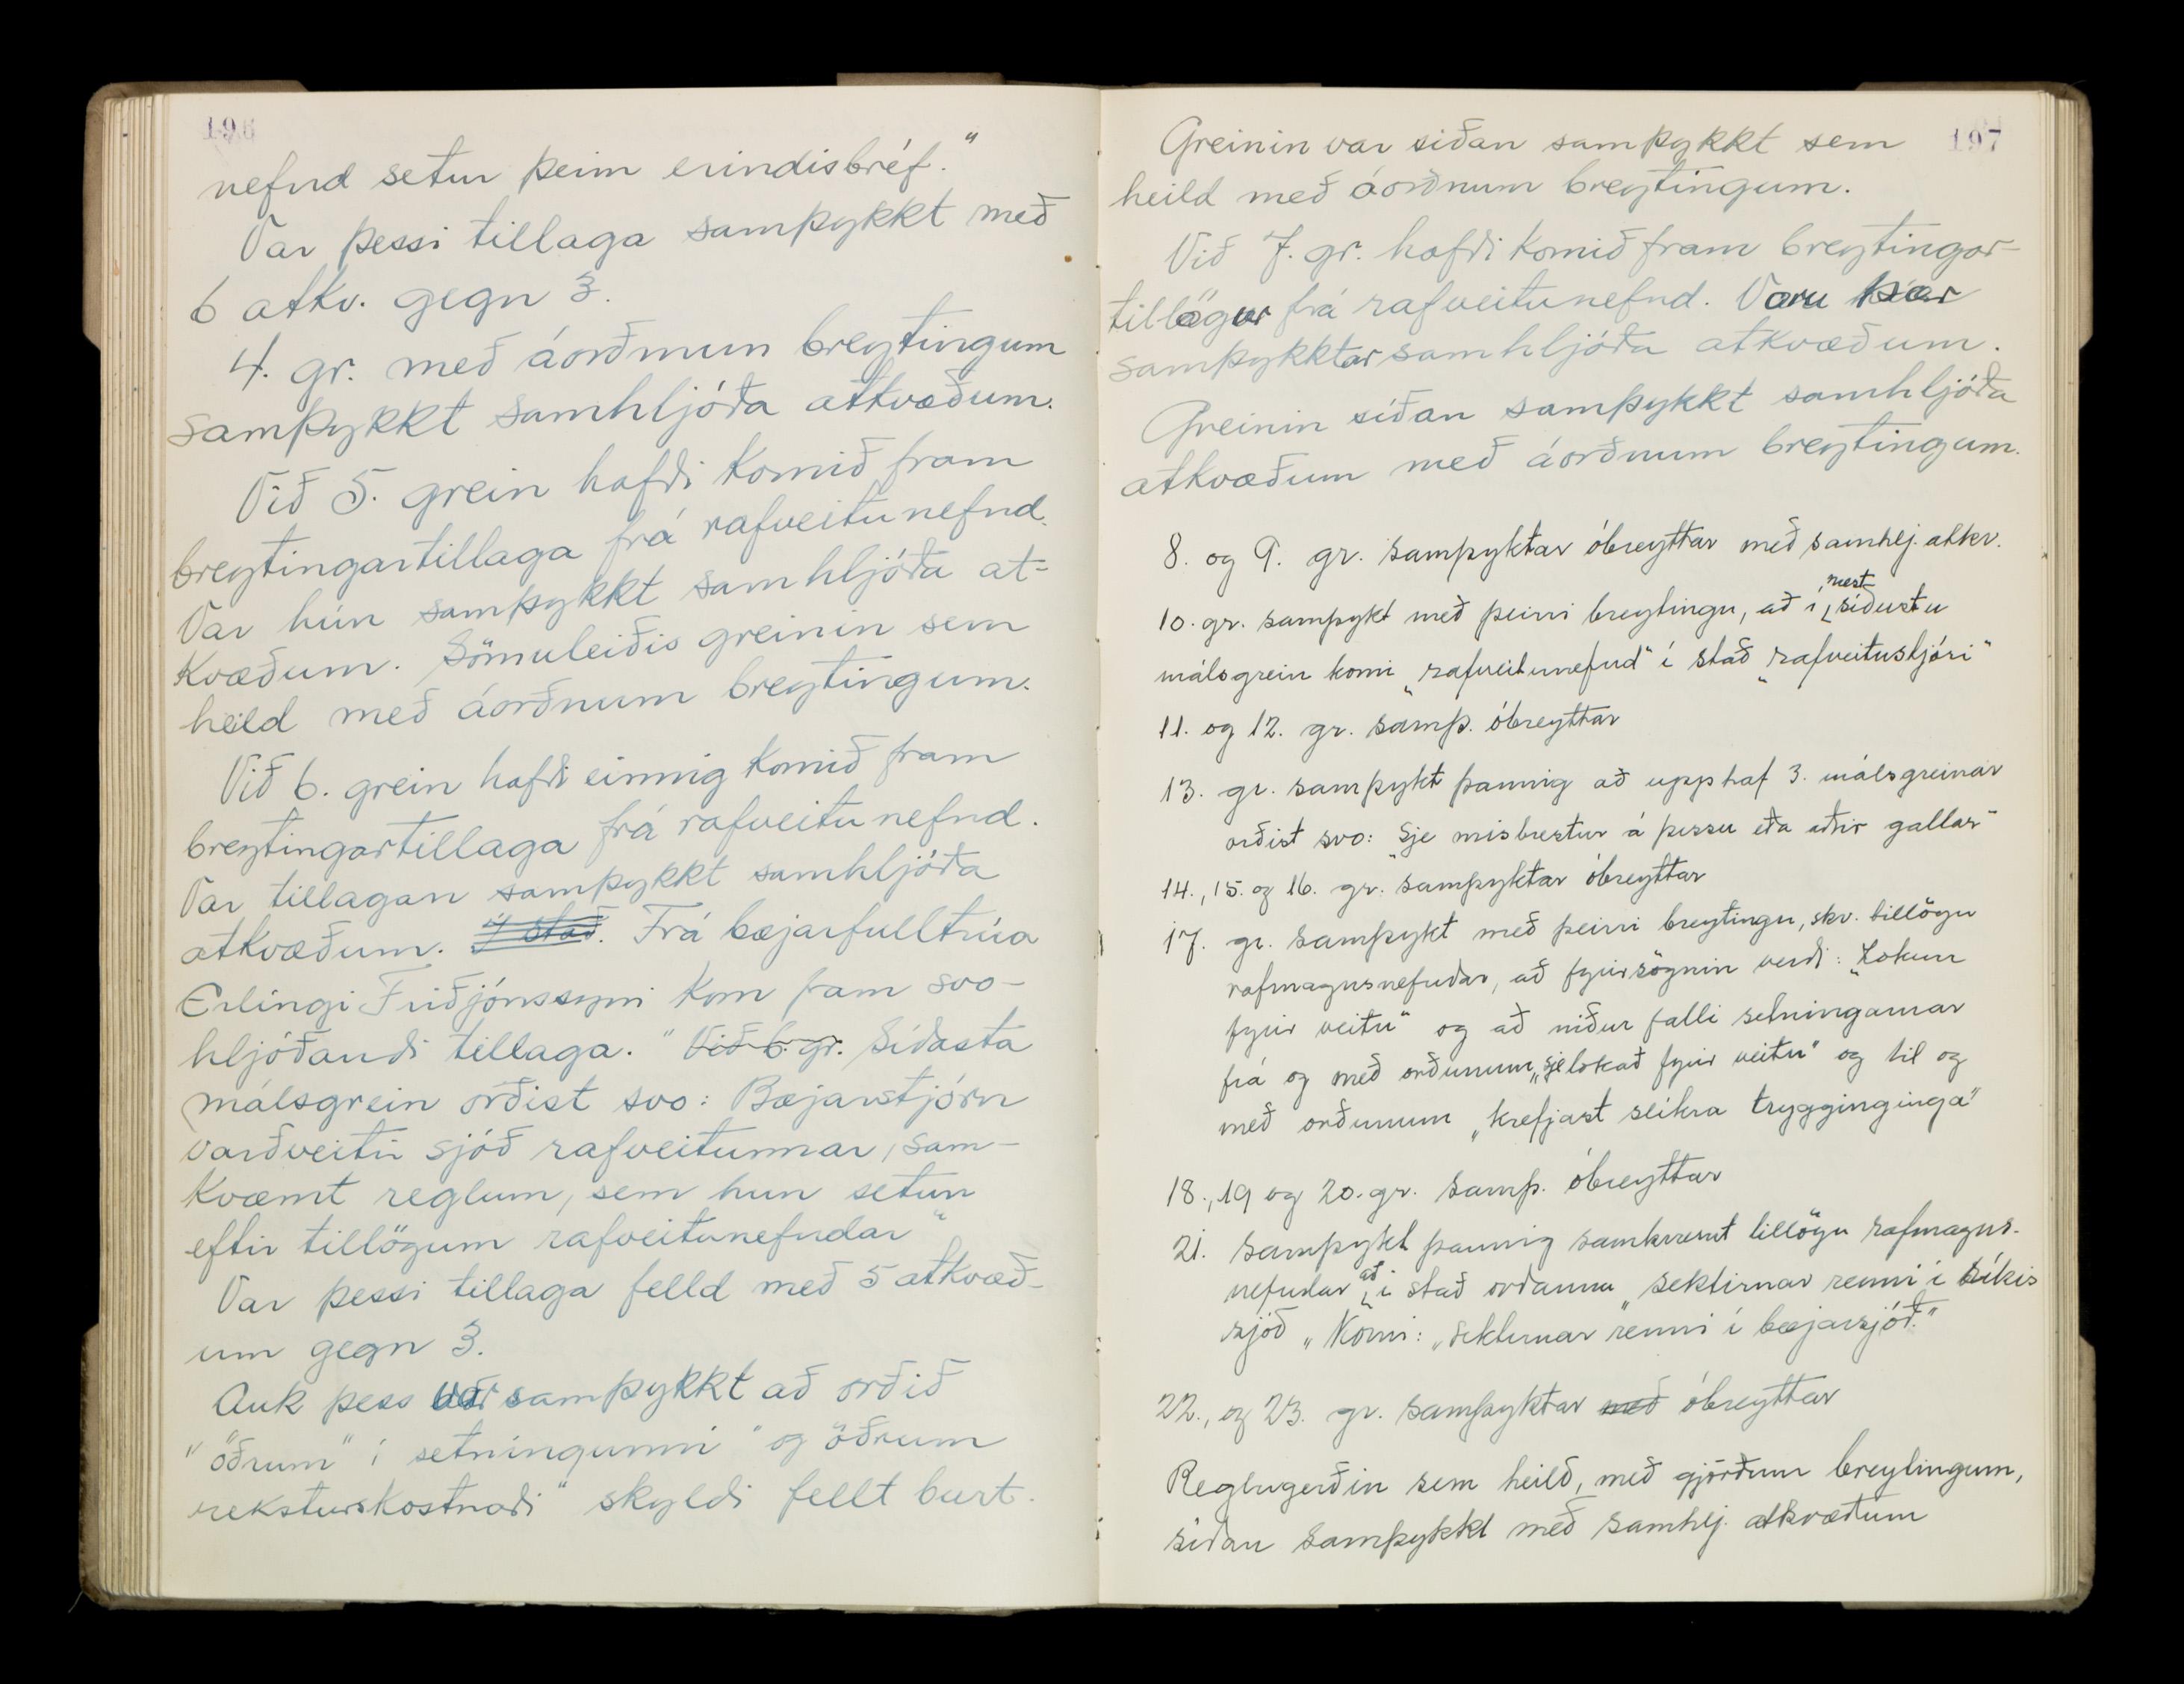 196
nefnd setur þeim erindisbréf."
Var þessi tillaga samþykkt með
6 atkv. gegn 3.
4. gr. með áorðnum breytingum
samþykkt samhljóða atkvæðum.
Við 5. grein hafði komið fram
breytingartillaga frá rafveitunefnd.
Var hún samþykkt samhljóða at-
kvæðum. Sömuleiðis greinin sem
heild með áorðnum breytingum.
Við 6. grein hafði einnig komið fram
breytingartillaga frá rafveitunefnd.
Var tillagan samþykkt samhljóða
atkvæðum. Í stað. Frá bæjarfulltrúa
Erlingi Friðjónssyni kom fram svo-
hljóðandi tillaga. "Við 6. gr. Síðasta
málsgrein orðist svo: Bæjarstjórn
varðveitir sjóð rafveitunnar, sam-
kvæmt reglum, sem hun setur
eftir tillögum rafveitunefndar"
Var þessi tillaga felld með 5 atkvæð-
um gegn 3.
Auk þess var samþykkt að orðið
"öðrum" í setningunni "og öðrum
reksturskostnaði" skyldi fellt burt.
197
Greinin var síðan samþykkt sem
heild með áorðnum breytingum.
Við 7. gr. hafði komið fram breytingar-
tillögur frá rafveitunefnd. Voru þær
samþykktar samhljóða atkvæðum.
Greinin síðan samþykkt samhljóða
atkvæðum með áorðnum breytingum.
8. og 9. gr. samþyktar óbreyttar með samhlj. atkv.
10. gr. samþykt með þeirri breytingu, að í næst síðustu
málsgrein komi „rafveitunefnd" í stað „rafveitustjóri"
11. og 12. gr. samþ. óbreyttar
13. gr. samþykt þannig að upphaf 3. málsgreinar
orðist svo: „Sje misbrestur á þessu eða aðrir gallar"
14., 15. og 16. gr. samþyktar óbreyttar
17. gr. samþykt með þeirri breytingu, skv. tillögu
rafmagnsnefndar, að fyrirsögnin verði: „Lokun
fyrir veitu" og að niður falli setningarnar
frá og með orðunum „sje lokað fyrir veitu" og til og
með orðunum „krefjast slíkra trygginginga"
18., 19 og 20. gr. samþ. óbreyttar
21. samþykt þannig samkvæmt tillögu rafmagns-
nefndar að í stað orðanna „sektirnar renni í ríkis
sjóð" komi: „sektirnar renni í bæjarsjóð."
22., og 23. gr. samþyktar með óbreyttar
Reglugerðin sem heild, með gjörðum breytingum,
síðan samþykkt með samhlj. atkvæðum